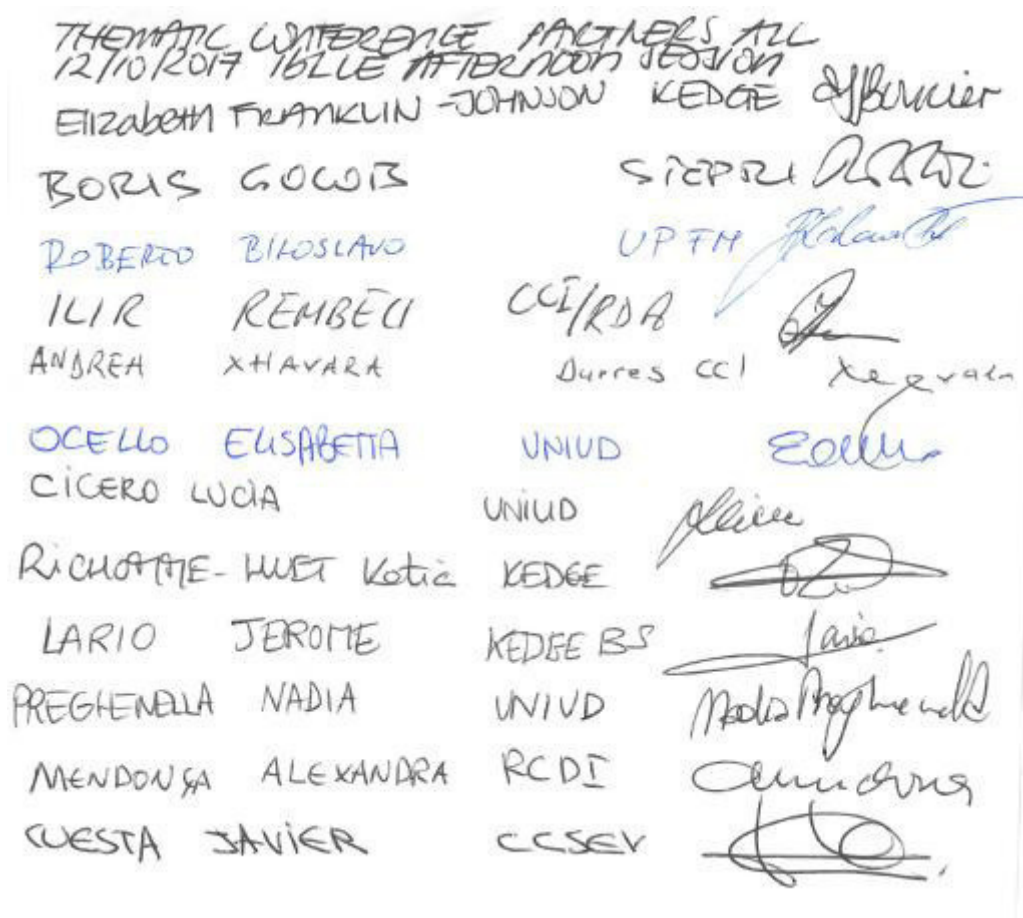 THEMATIC CONFERENCE PARTNERS ALL
12/10/2017 AFTERNOON SESSION
Elizabeth FRANKLIN-JOHNSON KEDGE
BORIS GOLOB
ROBERTO BILOSLAVO
ILIR CCI/RDA
ANDREA XHAVARA Durres CCI
OCELLO ELISABETTA UNIUD
CICERO LUCIA UNIUD
RICHOMME-HUET Katia KEDGE
LARIO JEROME KEDGE BS
PREGHENELLA NADIA UNIUD Nadia Preghenella
MENDONÇA ALEXANDRA RCDI
CUESTA JAVIER CCSEV